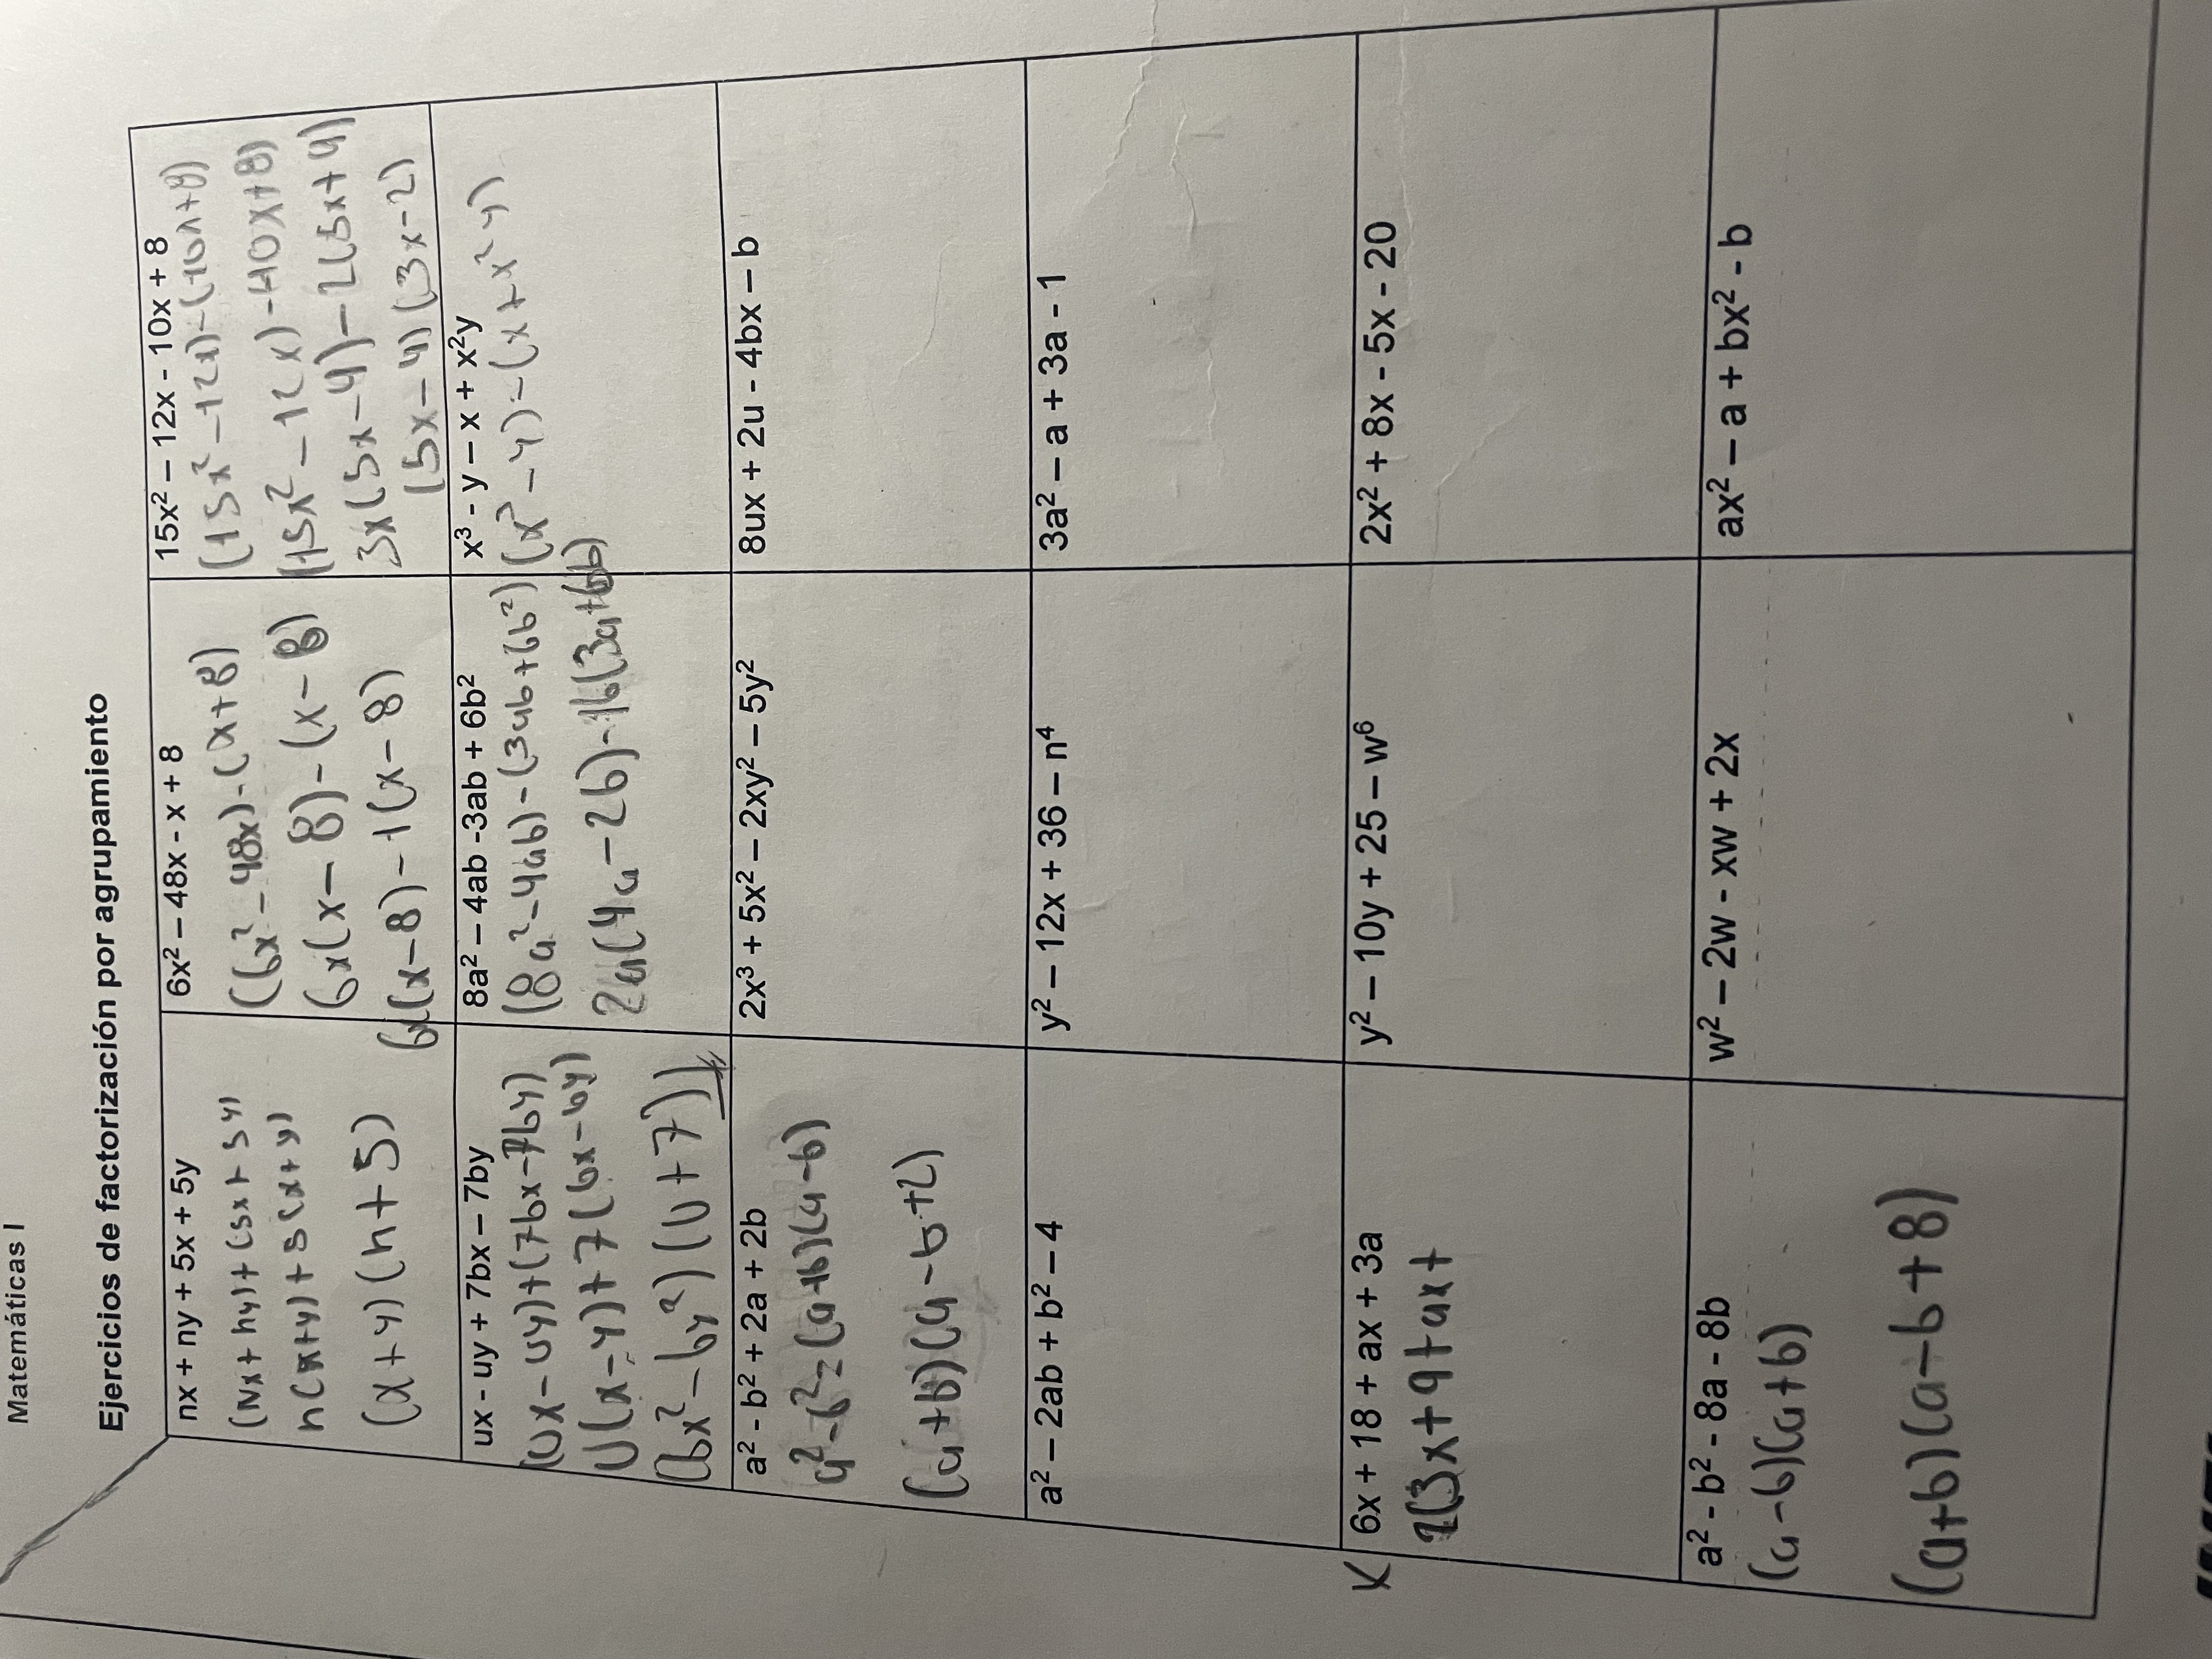 Matemáticas I
Ejercicios de factorización por agrupamiento
nx + ny + 5x + 5y
(Nx + ny) + (5x + 5y)
n(x+y) + 5(x+y)
(x+y)(n+5)
6x² – 48x - x + 8
(6x² – 48x) - (x+8)
6x(x – 8) – (x – 8)
6x(x–8) – 1(x – 8)
15x² – 12x - 10x + 8
(15x² – 12x) – (10x+8)
(15x² – 12x) - 10x+8)
3x(5x – 4) – 2(5x+4)
(5x – 4)(3x – 2)
ux - uy + 7bx – 7by
(Ux – uy) + (7bx – 7by)
U(x – y) + 7(bx – by)
(bx² – by²)(U+7)
8a² – 4ab -3ab + 6b²
(8a² – 4ab) – (3ab + 6b²)
2a(4a – 2b) – 1b(3a+6b)
x³ - y – x + x²y
(x³ – y) – (x + x²y)
a² - b² + 2a + 2b
a² – b² = (a+b)(a – b)
(a+b)(a – b+2)
2x³ + 5x² – 2xy² – 5y²
8ux + 2u - 4bx – b
a² – 2ab + b² – 4
y² – 12x + 36 – n⁴
3a² – a + 3a - 1
K
6x + 18 + ax + 3a
2(3x+9+ax+
y² – 10y + 25 – w⁶
2x² + 8x - 5x - 20
a² - b² - 8a - 8b
(a – b)(a+b)
(a+b)(a – b + 8)
w² – 2w - xw + 2x
ax² – a + bx² - b